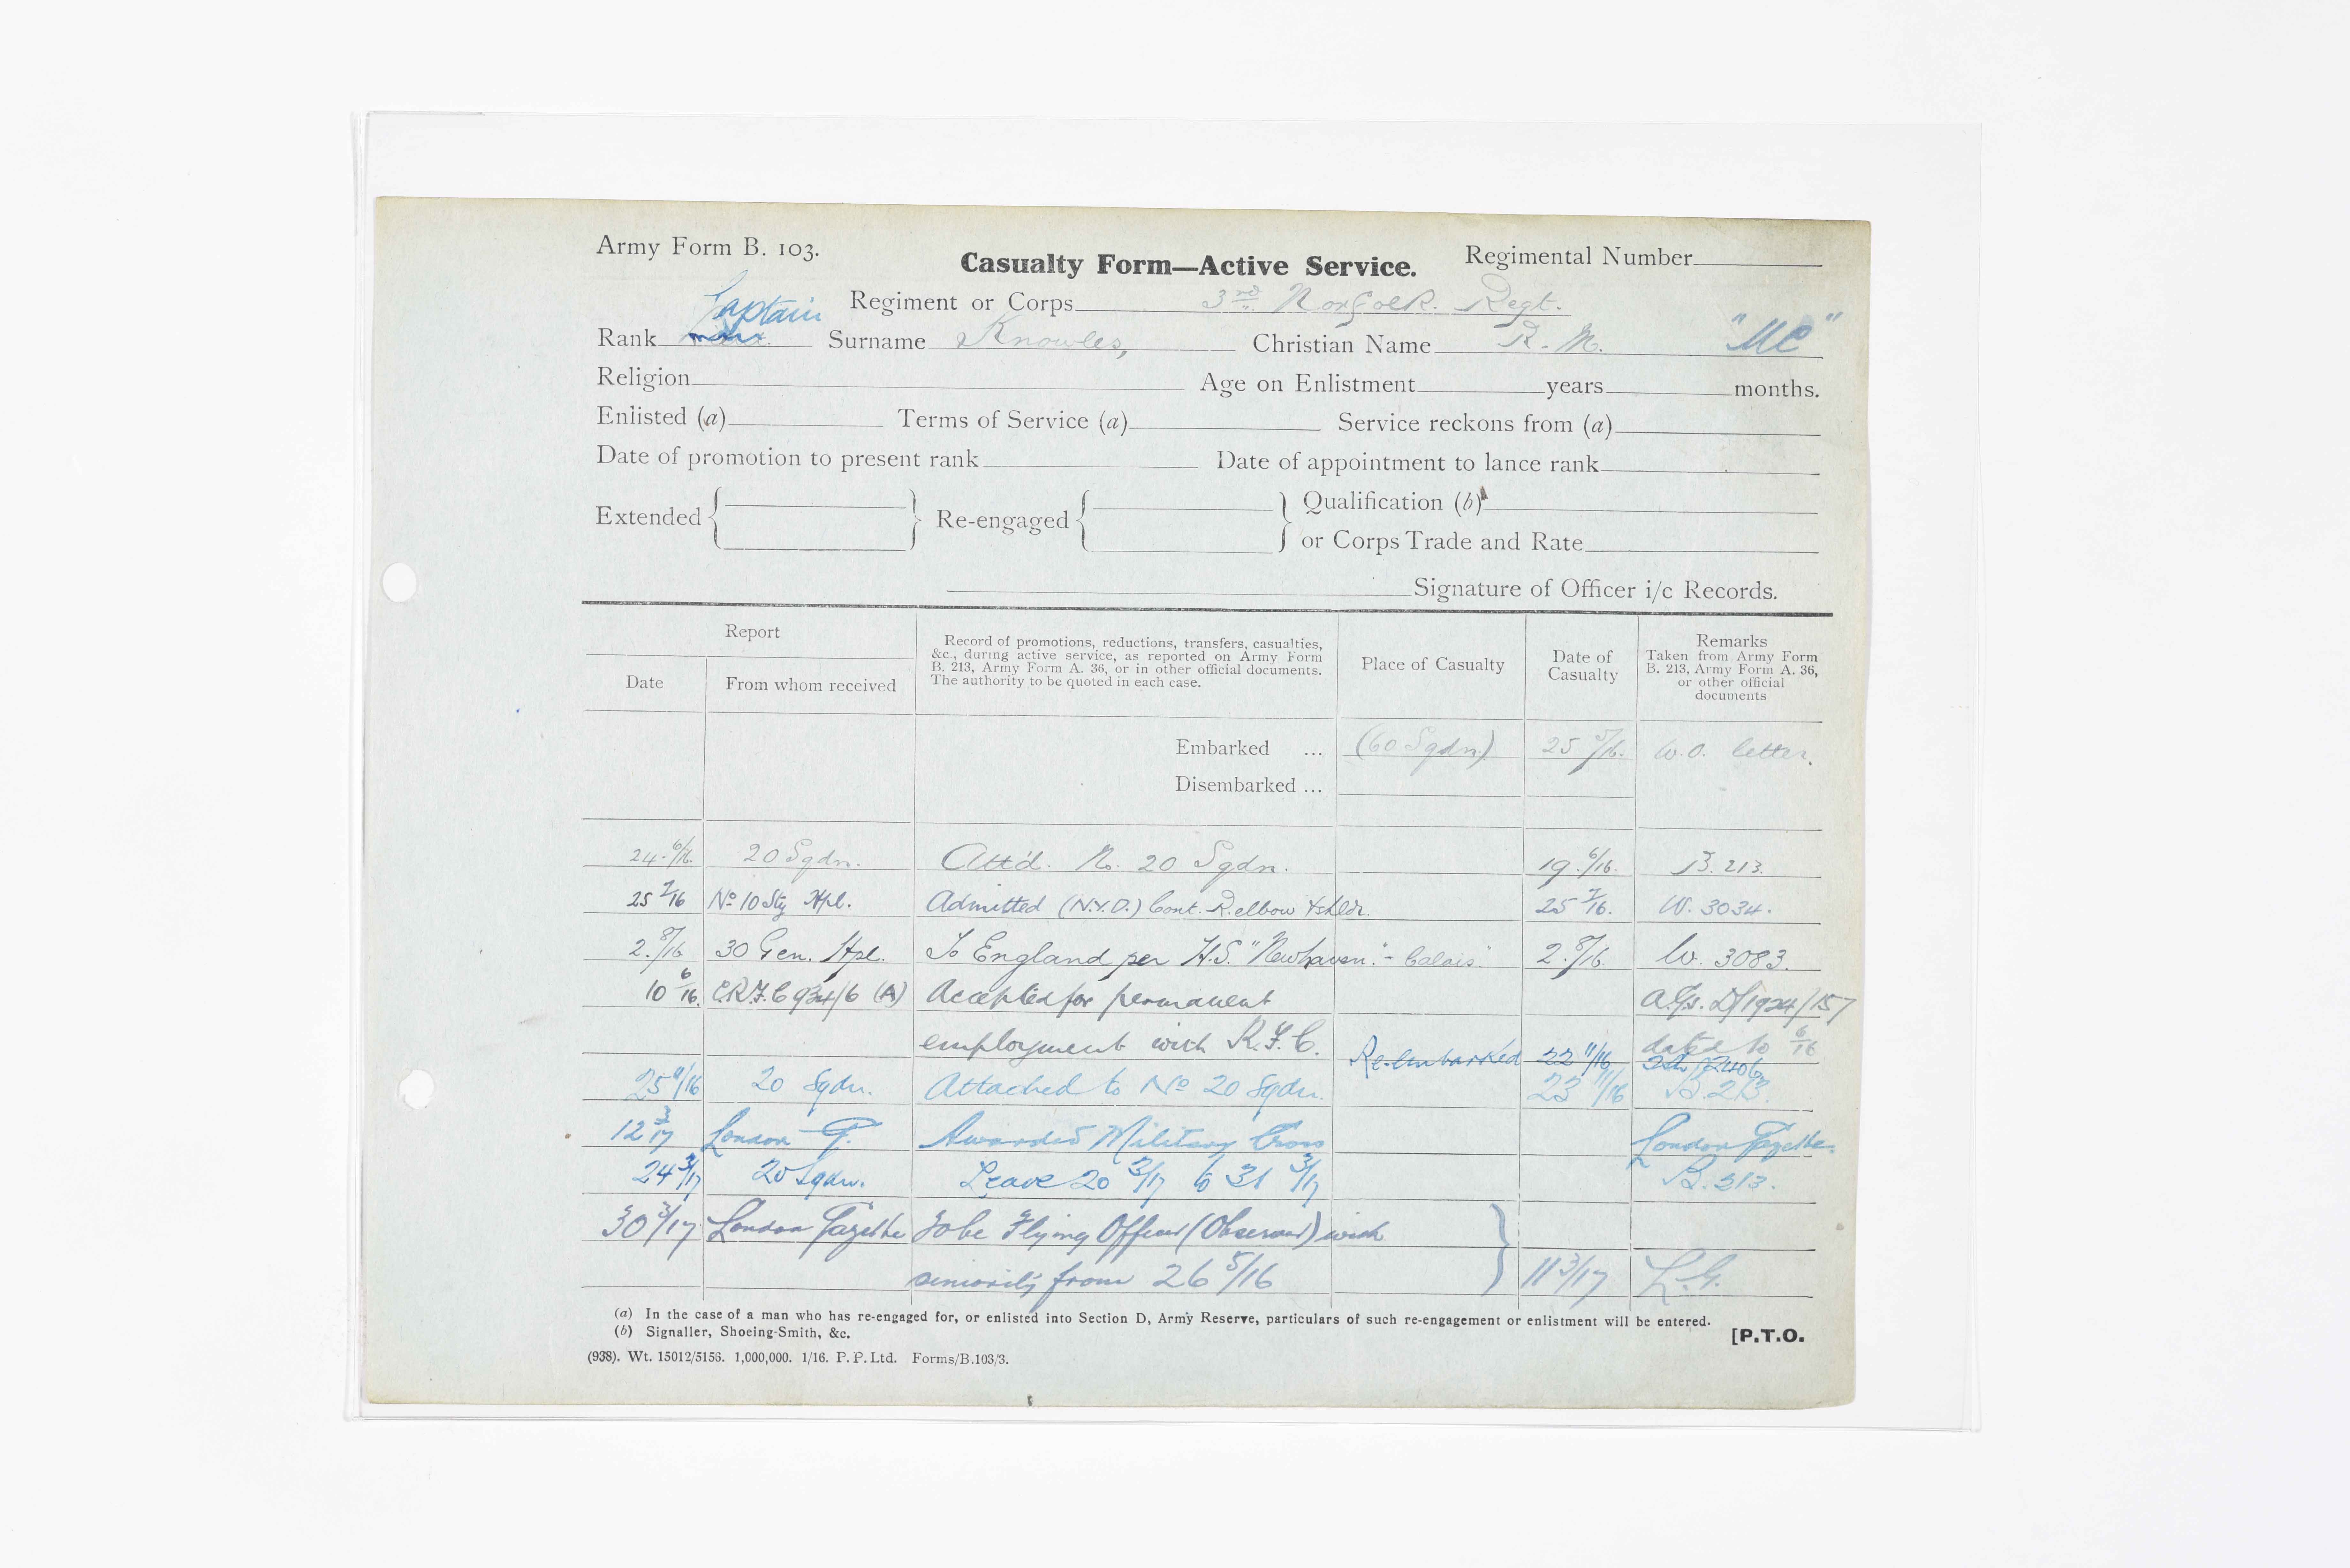 Army Form B. 103.
Casualty Form—Active Service.
Regimental Number
Captain
Regiment or Corps 3rd Norfolk. Regt.
Rank Surname Knowles, Christian Name R. M. "MC"
Religion Age on Enlistment years months.
Enlisted (a) Terms of Service (a) Service reckons from (a)
Date of promotion to present rank Date of appointment to lance rank
Extended Re-engaged Qualification (b)
or Corps Trade and Rate
Signature of Officer i/c Records.
Report
Date
From whom received
Record of promotions, reductions, transfers, casualties,
&c., during active service, as reported on Army Form
B. 213, Army Form A. 36, or in other official documents.
The authority to be quoted in each case.
Place of Casualty
Date of
Casualty
Remarks
Taken from Army Form
B. 213, Army Form A. 36,
or other official
documents
Embarked ... (60 Sqdn.) 25 5/16. W.O. letter.
Disembarked ...
24. 6/16. 20 Sqdn. Att'd. No. 20 Sqdn. 19. 6/16. B. 213.
25 7/16 No 10 Sty Hpl. Admitted (N.Y.D.) Cont. R. elbow & shldr. 25 7/16. W. 3034.
2. 8/16 30 Gen. Hpl. To England per H.S. "Newhaven." - Calais 2. 8/16. W. 3083.
10 6/16. C.R.F.C 934/6 (A) Accepted for permanent A.G's. D/1924/157
employment with R.F.C. dated 10 6/16
Re-embarked 22 11/16
25 11/16 20 Sqdn. Attached to No 20 Sqdn. 23 11/16 B. 213.
12 3/17 London G. Awarded Military Cross London Gazette.
24 3/17 20 Sqdn. Leave 20 3/17 to 31 3/17 B. 213.
30 3/17 London Gazette To be Flying Officer (Observer) with
seniority from 26 5/16 11 3/17 L.G.
(a) In the case of a man who has re-engaged for, or enlisted into Section D, Army Reserve, particulars of such re-engagement or enlistment will be entered.
(b) Signaller, Shoeing-Smith, &c.
[P.T.O.
(938). Wt. 15012/5156. 1,000,000. 1/16. P. P. Ltd. Forms/B.103/3.